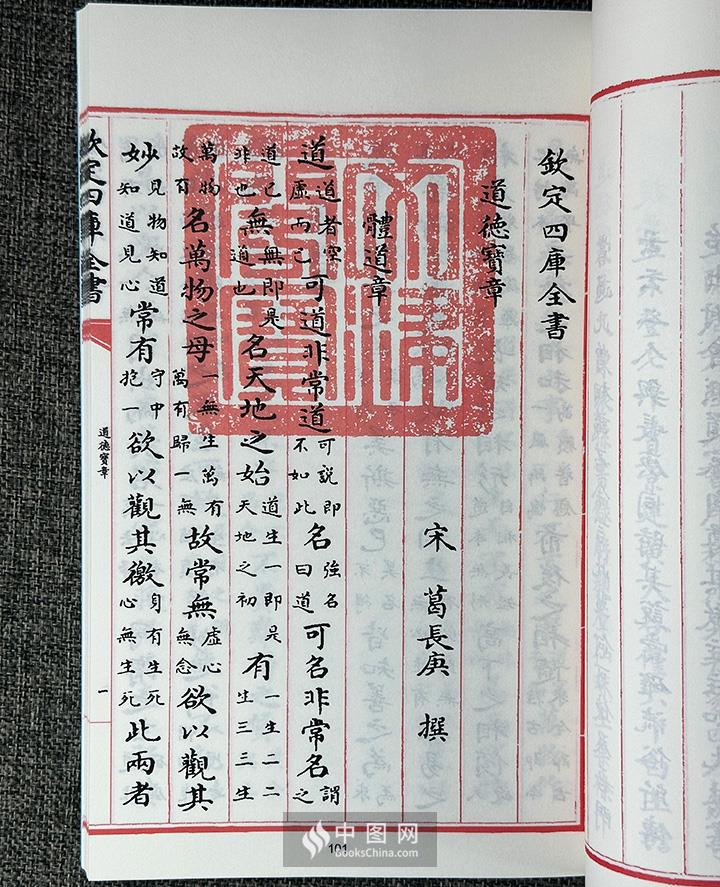 欽定四庫全書
道德寶章
宋 葛長庚 撰
體道章
道道者空虛而已可道非常道可説即不如此名強名曰道可名非常名謂之
道已非也無無即是道也名天地之始道生一即是天地之初有一生二二生三三生
萬物故有名萬物之母一無生萬有萬有歸一無故常無虛心無念欲以觀其
妙見物知道知道見心常有守中抱一欲以觀其徼身有生死心無生死此兩者
欽定四庫全書
道德寶章
一
文淵閣寶
101
中图网
BooksChina.com